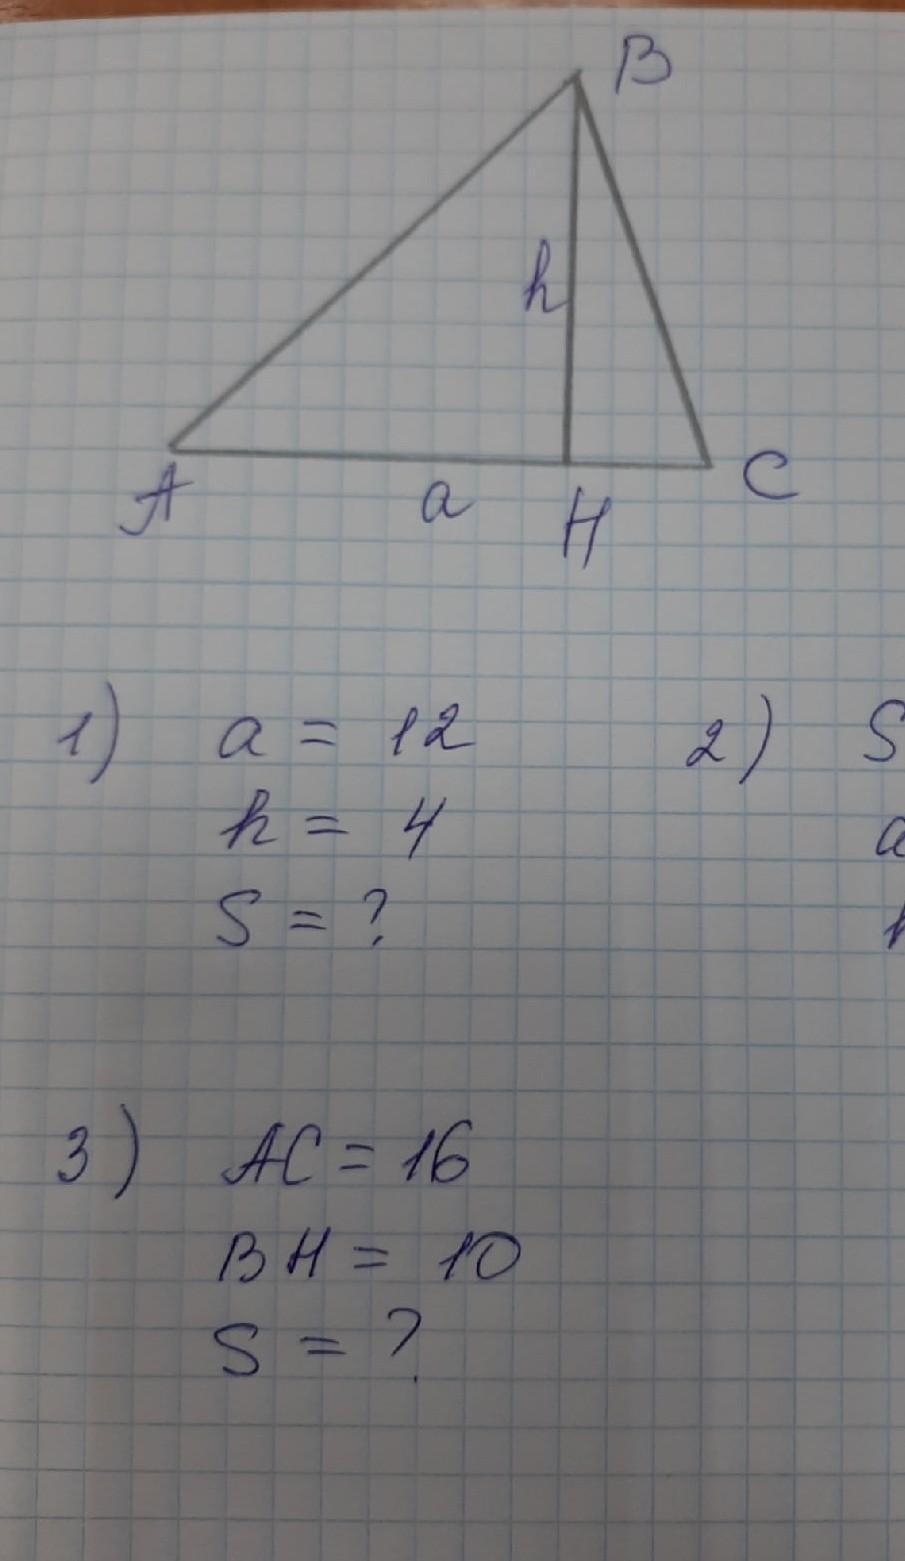 B
h
A
a
H
C
1) a = 12
h = 4
S = ?
2) S
a
3) AC = 16
BH = 10
S = ?